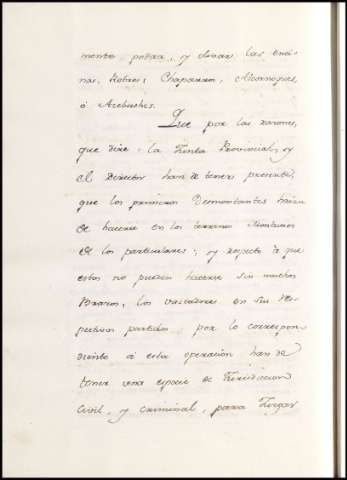 mente podar, y aloar las enci-
nas, Robres, Chaparros, Alcornoques,
ó Acebuches.
Que por las razones,
que dize la Junta Provincial, y
el Director han de tener presente,
que los primeros Desmontantes han
de hacerse en los terrenos
de los particulares; y respecto à que
estos no pueden hacerse sin muchos
Brazos, los visitadores en sus res-
pectivos partidos por lo correspon-
diente á esta operación han de
tener una especie de Jurisdiccion
Civil, y criminal, para Juzgar